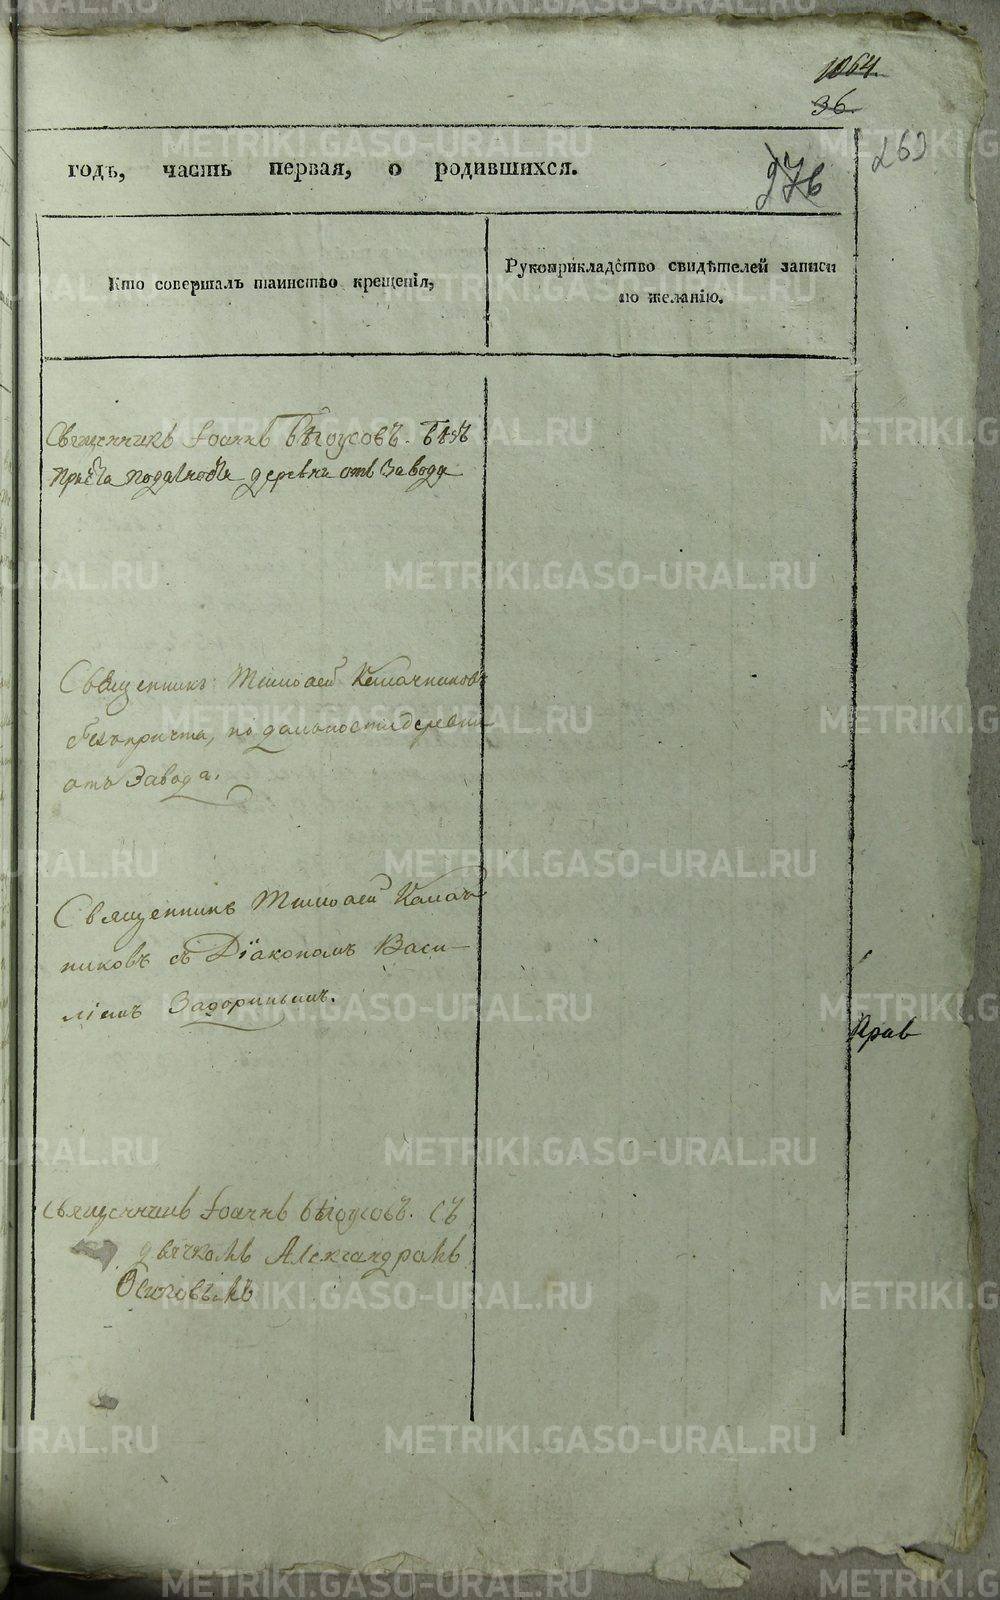 1064.
36.
269
276
годъ, часть первая, о родившихся.
Кто совершалъ таинство крещенія,
Рукоприкладство свидѣтелей записи
по желанію.
Священникъ Іоаннъ Бѣлоусовъ. Безъ
причта подальности деревни отъ Завода
Священникъ Тимоѳей
безъ причта, по дальности деревни
отъ Завода.
Священникъ Тимоѳей Калач
никовъ съ Діакономъ Васи-
ліемъ Задоринымъ.
Прав
Священникъ Іоаннъ Бѣлоусовъ. Съ
дьячкомъ Александромъ
METRIKI.GASO-URAL.RU